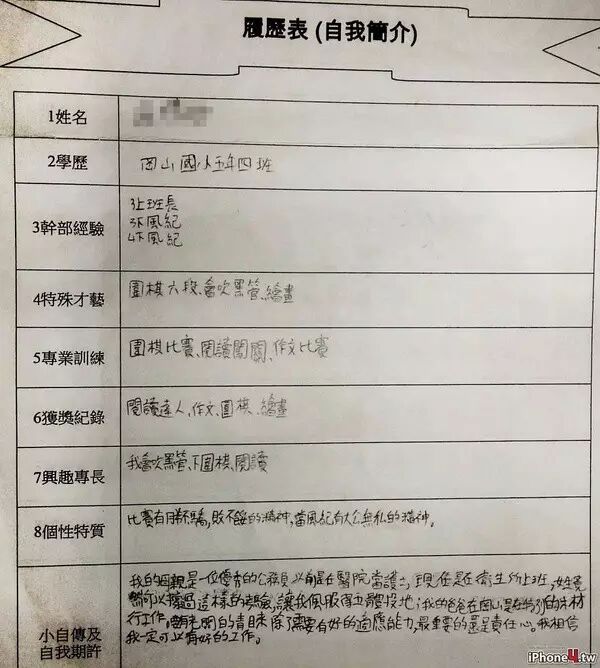 履歷表 (自我簡介)
1姓名
2學歷 岡山國小五年四班
3幹部經驗 3上班長
3下風紀
4下風紀
4特殊才藝 圍棋六段、會吹黑管、繪畫
5專業訓練 圍棋比賽、閱讀闖關、作文比賽
6獲獎紀錄 閱讀達人、作文、圍棋、繪畫
7興趣專長 我會吹黑管、下圍棋、閱讀
8個性特質 比賽有勝不驕,敗不餒的精神,當風紀有大公無私的精神。
小自傳及
自我期許
我的母親是一位優秀的公務員,以前是在醫院當護士,現在是在衛生所上班,
可以撐過這樣的考驗,讓我佩服得五體投地;我的爸爸在岡山
行工作,除了需要有好的適應能力,最重要的還是責任心。我相信
我一定可以有好的工作。
iPhone4.tw